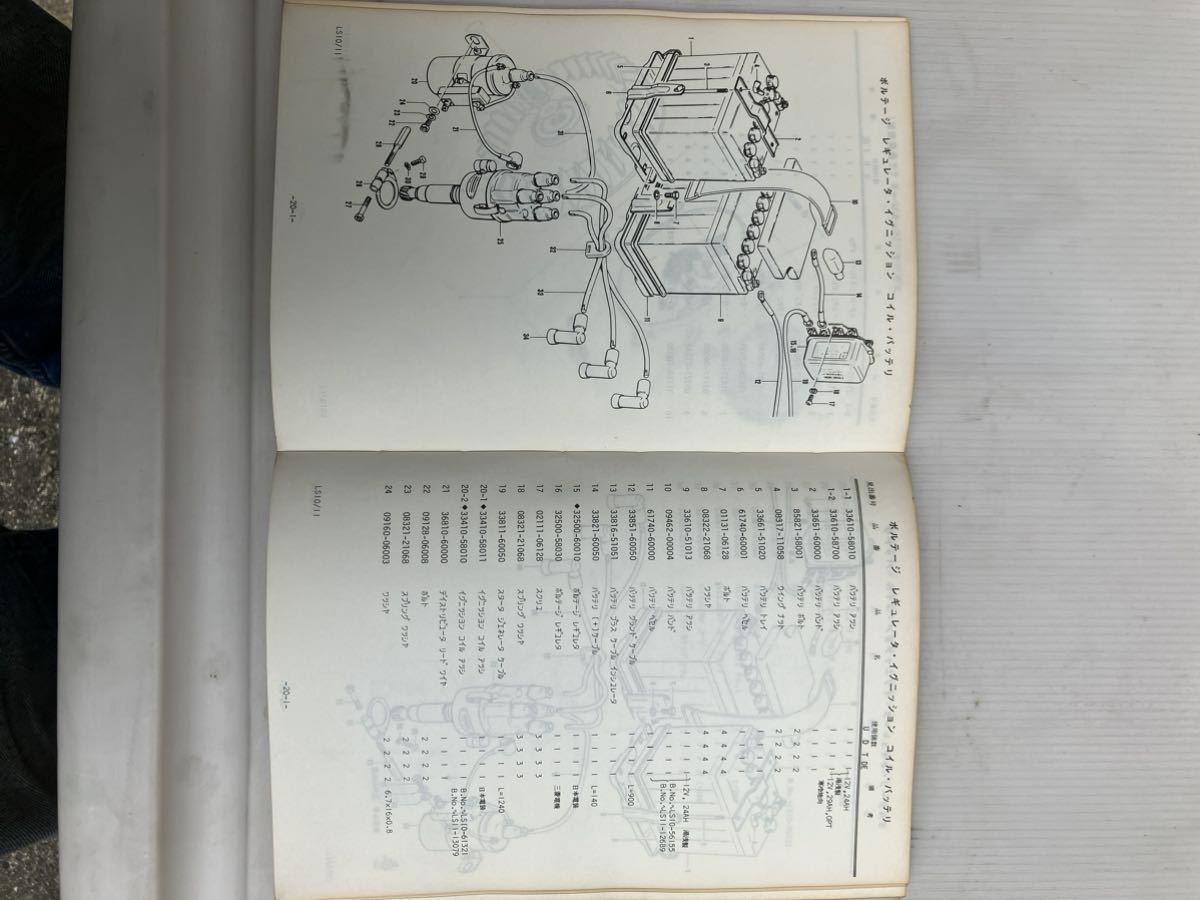 ボルテージ レギュレータ・イグニッション コイル・バッテリ
1
2
3
4
5
6
7
8
9
10
11
12
13
14
15.16
17
18
19
20
21
22
23
24
25
27
28
29
30
31
32
33
34
LS10/11
-20-1-
ボルテージ レギュレータ・イグニッション コイル・バッテリ
見出番号 品番 品名 使用個数 U D T DE 備考
1-1 33610-58010 バッテリ アッシ 1 1 1 12V, 24AH 湯浅製
1-2 33610-58700 バッテリ アッシ 1 1 1 12V, 29AH, OPT 寒冷地向
2 33651-60000 バッテリ バンド 1 1 1
3 85821-58001 バッテリ ボルト 2 2 2
4 08317-11058 ウイング ナット 2 2 2
5 33661-51020 バッテリ トレイ 1 1 1
6 61740-60001 バッテリ ヘセル 1 1 1
7 01131-06128 ボルト 4 4 4
8 08322-21068 ワッシヤ 4 4 4
9 33610-51013 バッテリ アッシ 1 1 1 12V, 24AH 湯浅製
10 09462-00004 バッテリ バンド 1 1 1 B.No.~LS10-56155
11 61740-60000 バッテリ ヘセル 1 1 1 B.No.~LS11-12689
12 33851-60050 バッテリ グランド ケーブル 1 1 1 L=900
13 33816-51051 バッテリ プラス ケーブル インシュレータ 1 1 1
14 33821-60050 バッテリ (+)ケーブル 1 1 1 L=140
15 ◆32500-60010 ボルテージ レギュレタ 1 1 1 日本電装
16 32500-58030 ボルテージ レギュレタ 1 1 1 三菱電機
17 02111-06128 スクリュ 3 3 3
18 08321-21068 スプリング ワッシヤ 3 3 3
19 33811-60050 スタータ ジエネレータ ケーブル 1 1 1 L=1240
20-1 ◆33410-58011 イグニッション コイル アッシ 1 1 1 日本電装
20-2 ◆33410-58010 イグニッション コイル アッシ 1 1 1 B.No.~LS10-61321
21 36810-60000 デイストリビュータ リード ワイヤ 1 1 1 B.No.~LS11-13079
22 09128-06008 ボルト 2 2 2
23 08321-21068 スプリング ワッシヤ 2 2 2
24 09160-06003 ワッシヤ 2 2 2 6.7×16×0.8
LS10/11
-20-1-